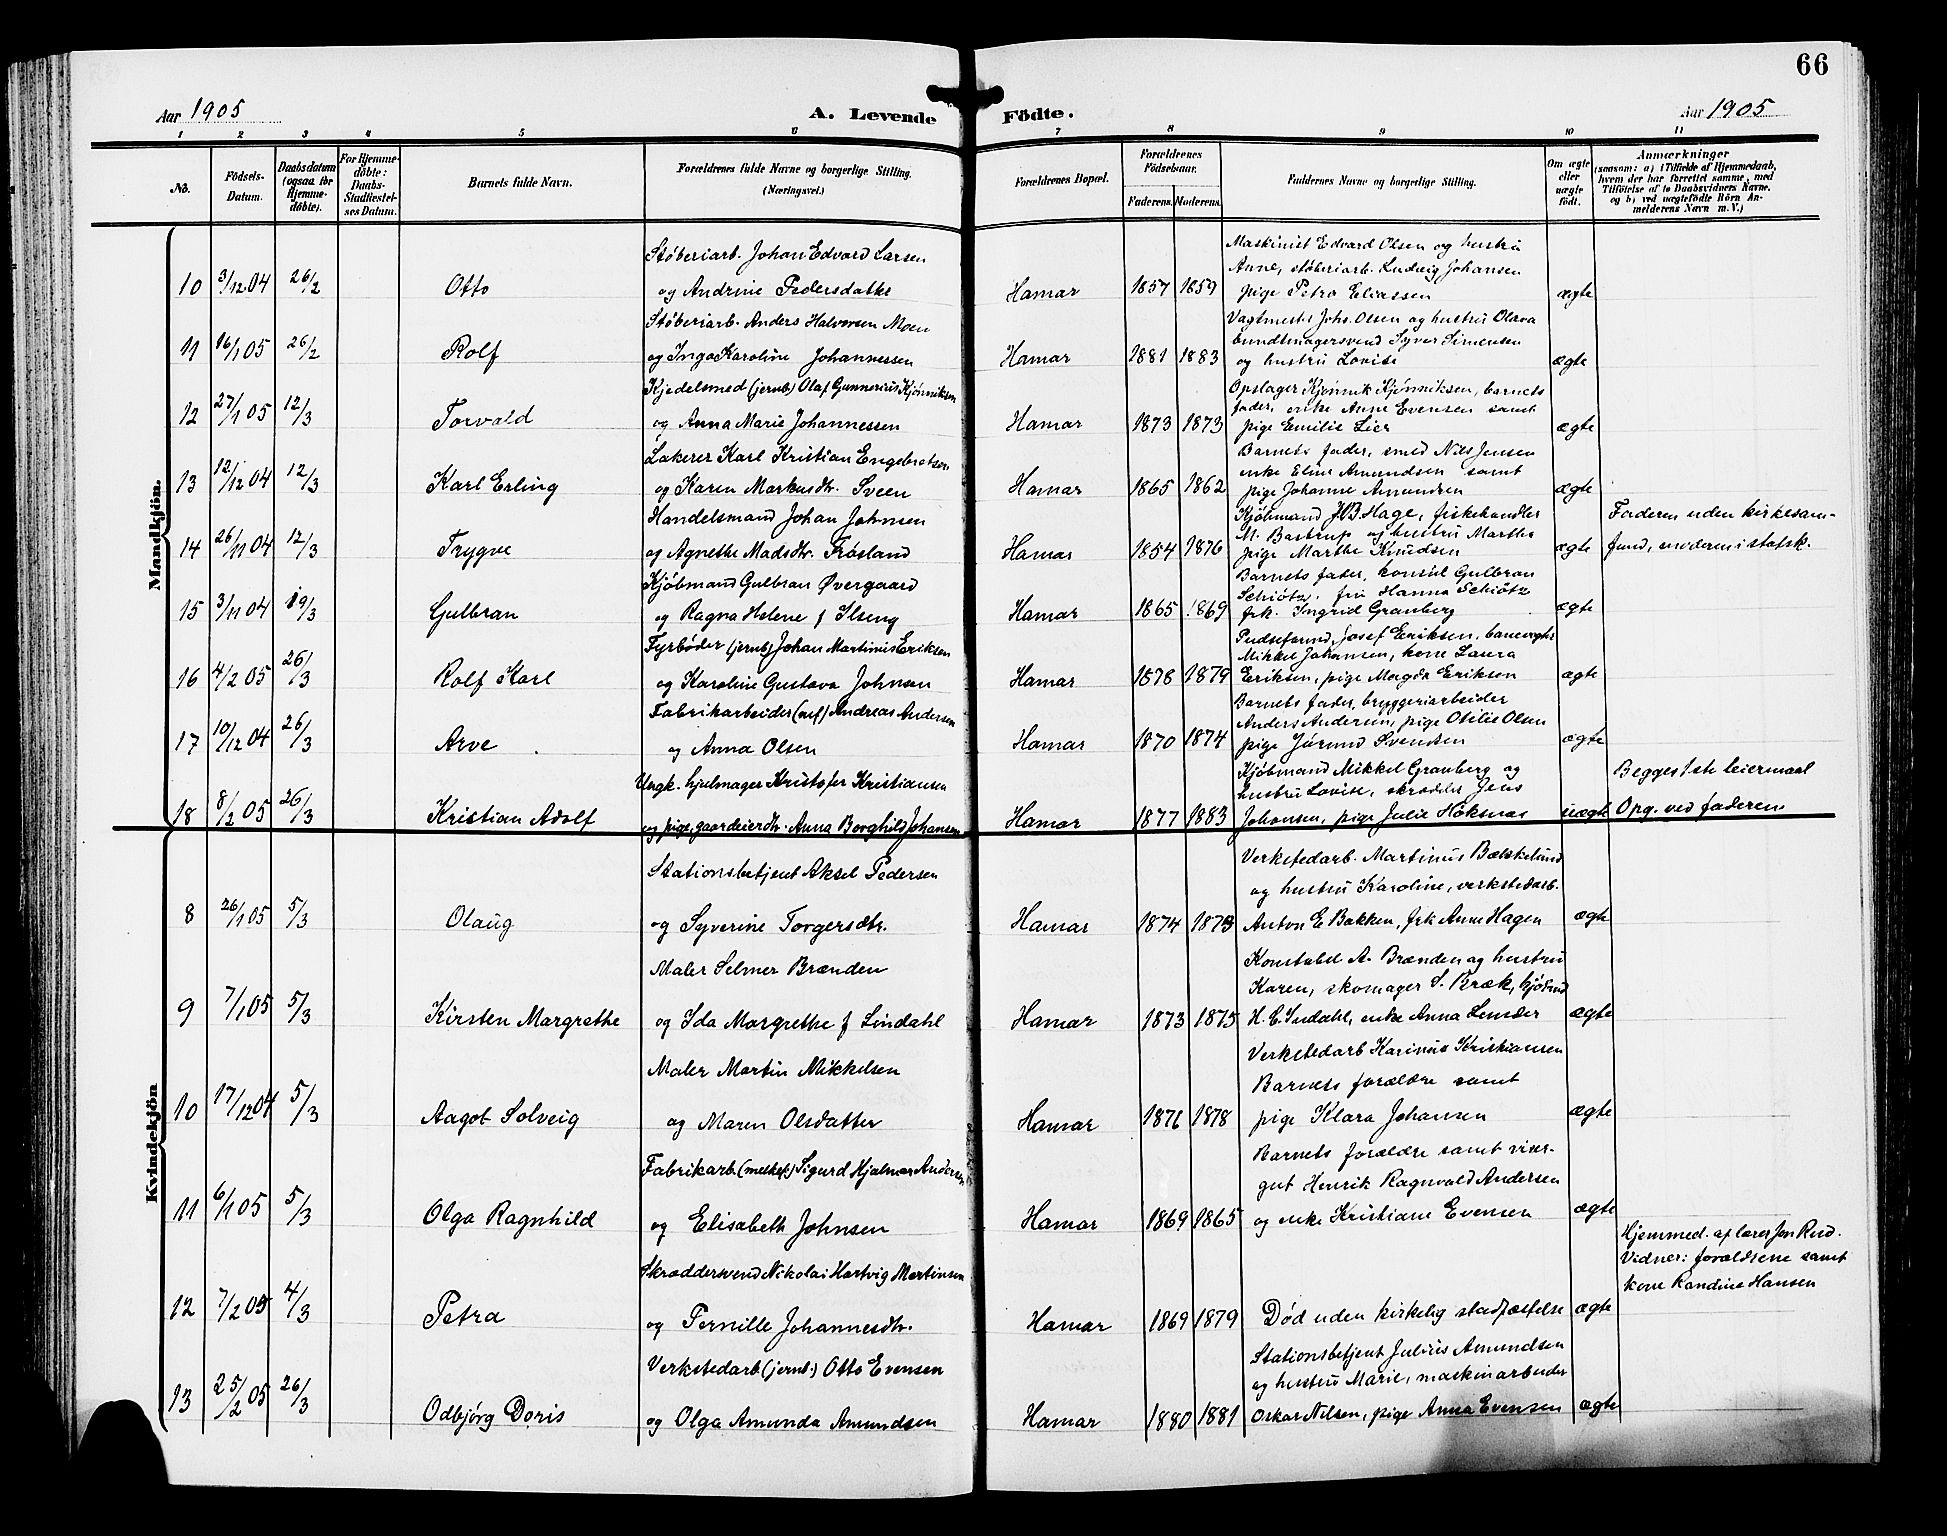 66
Aar 1905
A. Levende Födte.
Aar 1905
1 2 3 4 5 6 7 8 9 10 11
No.
Födsels-Datum.
Daabsdatum (ogsaa for Hjemmedöbte).
For Hjemmedöbte: Daabs-Stadfæstelses Datum.
Barnets fulde Navn.
Forældrenes fulde Navne og borgerlige Stilling.
(Næringsvei.)
Forældrenes Bopæl.
Forældrenes Födselsaar.
Faderens. Moderens.
Faddernes Navne og borgerlige Stilling.
Om ægte eller uægte födt.
Anmærkninger
(saasom: a) i Tilfælde af Hjemmedaab,
hvem der har forrettet samme, med
Tilföielse af to Daabsvidners Navne,
og b) ved uægtefödte Börn Anmelderens Navn m. V.)
Mandkjön.
Støberiarb. Johan Edvard Larsen
Maskinist Edvard Olsen og hustru
Anne, støberiarb. Ludvig Johansen
10 3/12 04 26/2 Otto og Andrine Pedersdatter Hamar 1857 1859 pige Petra Eliassen ægte
Støberiarb. Anders Halvorsen Moen
Vagtmester Johs. Olsen og hustru Olava
bundtmagersvend Syver Simensen
11 16/1 05 26/2 Rolf og Inga Karoline Johannessen Hamar 1881 1883 og hustru Lovise ægte
Kjedelsmed (jernb) Olaf Gunnerius Kjønniksen
Opslager Kjønnik Kjønniksen, barnets
fader, enke Anne Evensen samt
12 27/1 05 12/3 Torvald og Anna Marie Johannessen Hamar 1873 1873 pige Emilie Lier ægte
Lakerer Karl Kristian Engebretsen
Barnets fader, smed Nils Jensen
enke Eline Amundsen samt
13 12/12 04 12/3 Karl Erling og Karen Markusdtr. Sveen Hamar 1865 1862 pige Johanne Amundsen ægte
Handelsmand Johan Johnsen
Kjøbmand J.B. Hage, fiskehandler
M. Bastrup og hustru Marthe
Faderen uden kirkesam-
14 26/11 04 12/3 Trygve og Agnethe Madsdtr. Frøsland Hamar 1854 1876 pige Marthe Knudsen ægte fund, moderen i statsk.
Kjøbmand Gulbran Øvergaard
Barnets fader, konsul Gulbran
Schiøtz, fru Hanna Schiøtz
15 3/11 04 19/3 Gulbran og Ragna Helene f Ilseng Hamar 1865 1869 frk. Ingrid Granberg ægte
Fyrbøder (jernb) Johan Martinius Eriksen
Pudseformd. Josef Eriksen, banevogter
Mikkel Johansen, kone Laura
16 4/2 05 26/3 Rolf Karl og Karoline Gustava Johnsen Hamar 1878 1879 Eriksen, pige Magda Eriksen ægte
Fabrikarbeider Andreas Andersen
Barnets fader, bryggeriarbeider
Anders Andersen, pige Otilie Olsen
17 10/12 04 26/3 Arve og Anna Olsen Hamar 1870 1874 pige Jørund Svendsen ægte
Ungk. hjulmager Kristofer Kristiansen
Kjøbmand Mikkel Granberg og
hustru Lovise, skrædder Jens
Begges 1ste leiermaal
18 8/2 05 26/3 Kristian Adolf og pige, gaardeierdtr. Anna Borghild Johansen Hamar 1877 1883 Johansen, pige Julie Høksnas uægte Opg. ved faderen
Kvindekjön
Stationsbetjent Aksel Pedersen
Verkstedarb. Martinus Bækkelund
og hustru Karoline, verkstedarb.
8 26/1 05 5/3 Olaug og Syverine Torgersdtr. Hamar 1874 1873 Anton E Bakken, frk Anne Hagen ægte
Maler Selmer Brænden
Konstabel A. Brænden og hustru
Karen, skomager S. Bræk, kjøbmd
9 7/1 05 5/3 Kirsten Margrethe og Ida Margrethe f Lindahl Hamar 1873 1875 H. C. Lindahl, enke Anna Lunder ægte
Maler Martin Mikkelsen
Verkstedarb Karinus Kristiansen
Barnets forældre samt
10 17/12 04 5/3 Aagot Solveig og Maren Olsdatter Hamar 1876 1878 pige Klara Johansen ægte
Fabrikarb (melkef) Sigurd Hjalmar Andersen
Barnets forældre samt viser-
gut Henrik Ragnvald Andersen
11 6/1 05 5/3 Olga Ragnhild og Elisabeth Johnsen Hamar 1869 1865 og enke Kristiane Evensen ægte
Skræddersvend Nikolai Hartvig Martinsen
Hjemmed. af lærer Jon Rud.
Vidner: forældrene samt
kone Randine Hansen
12 7/2 05 4/3 Petra og Pernille Johannesdtr. Hamar 1869 1879 Død uden kirkelig stadfæstelse ægte
Verkstedarb (jernb.) Otto Evensen
Stationsbetjent Julius Amundsen
og hustru Marie, maskinarbeider
13 25/2 05 26/3 Odbjørg Doris og Olga Amunda Amundsen Hamar 1880 1881 Oskar Nilsen, pige Anna Evensen ægte